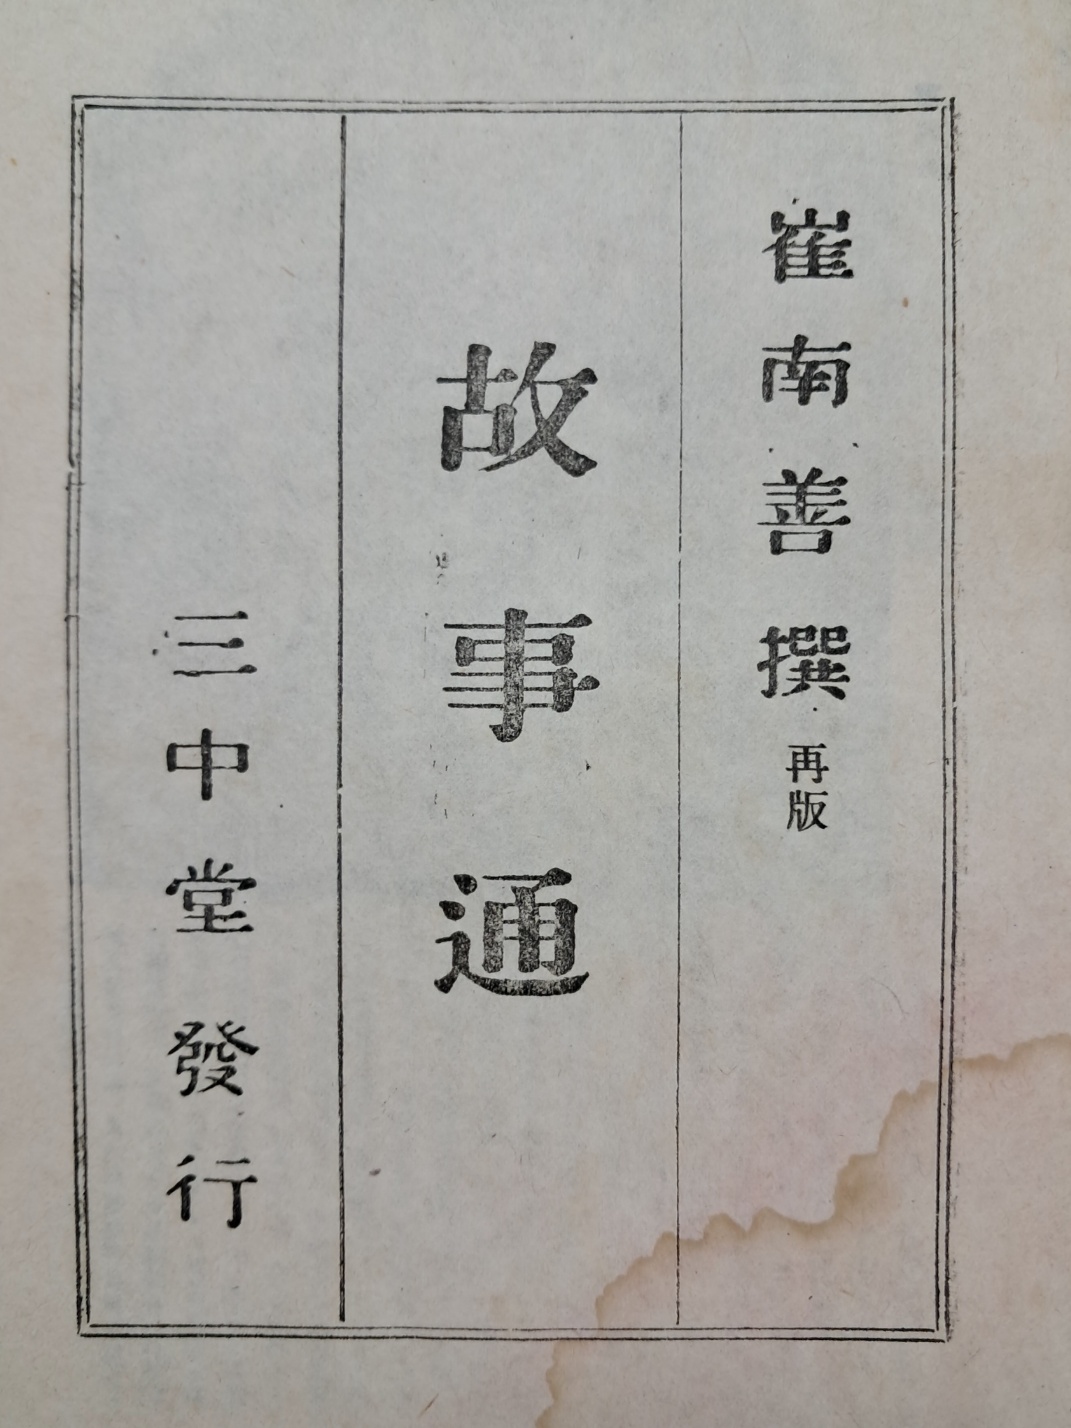 崔南善撰 再版
故事通
三中堂發行